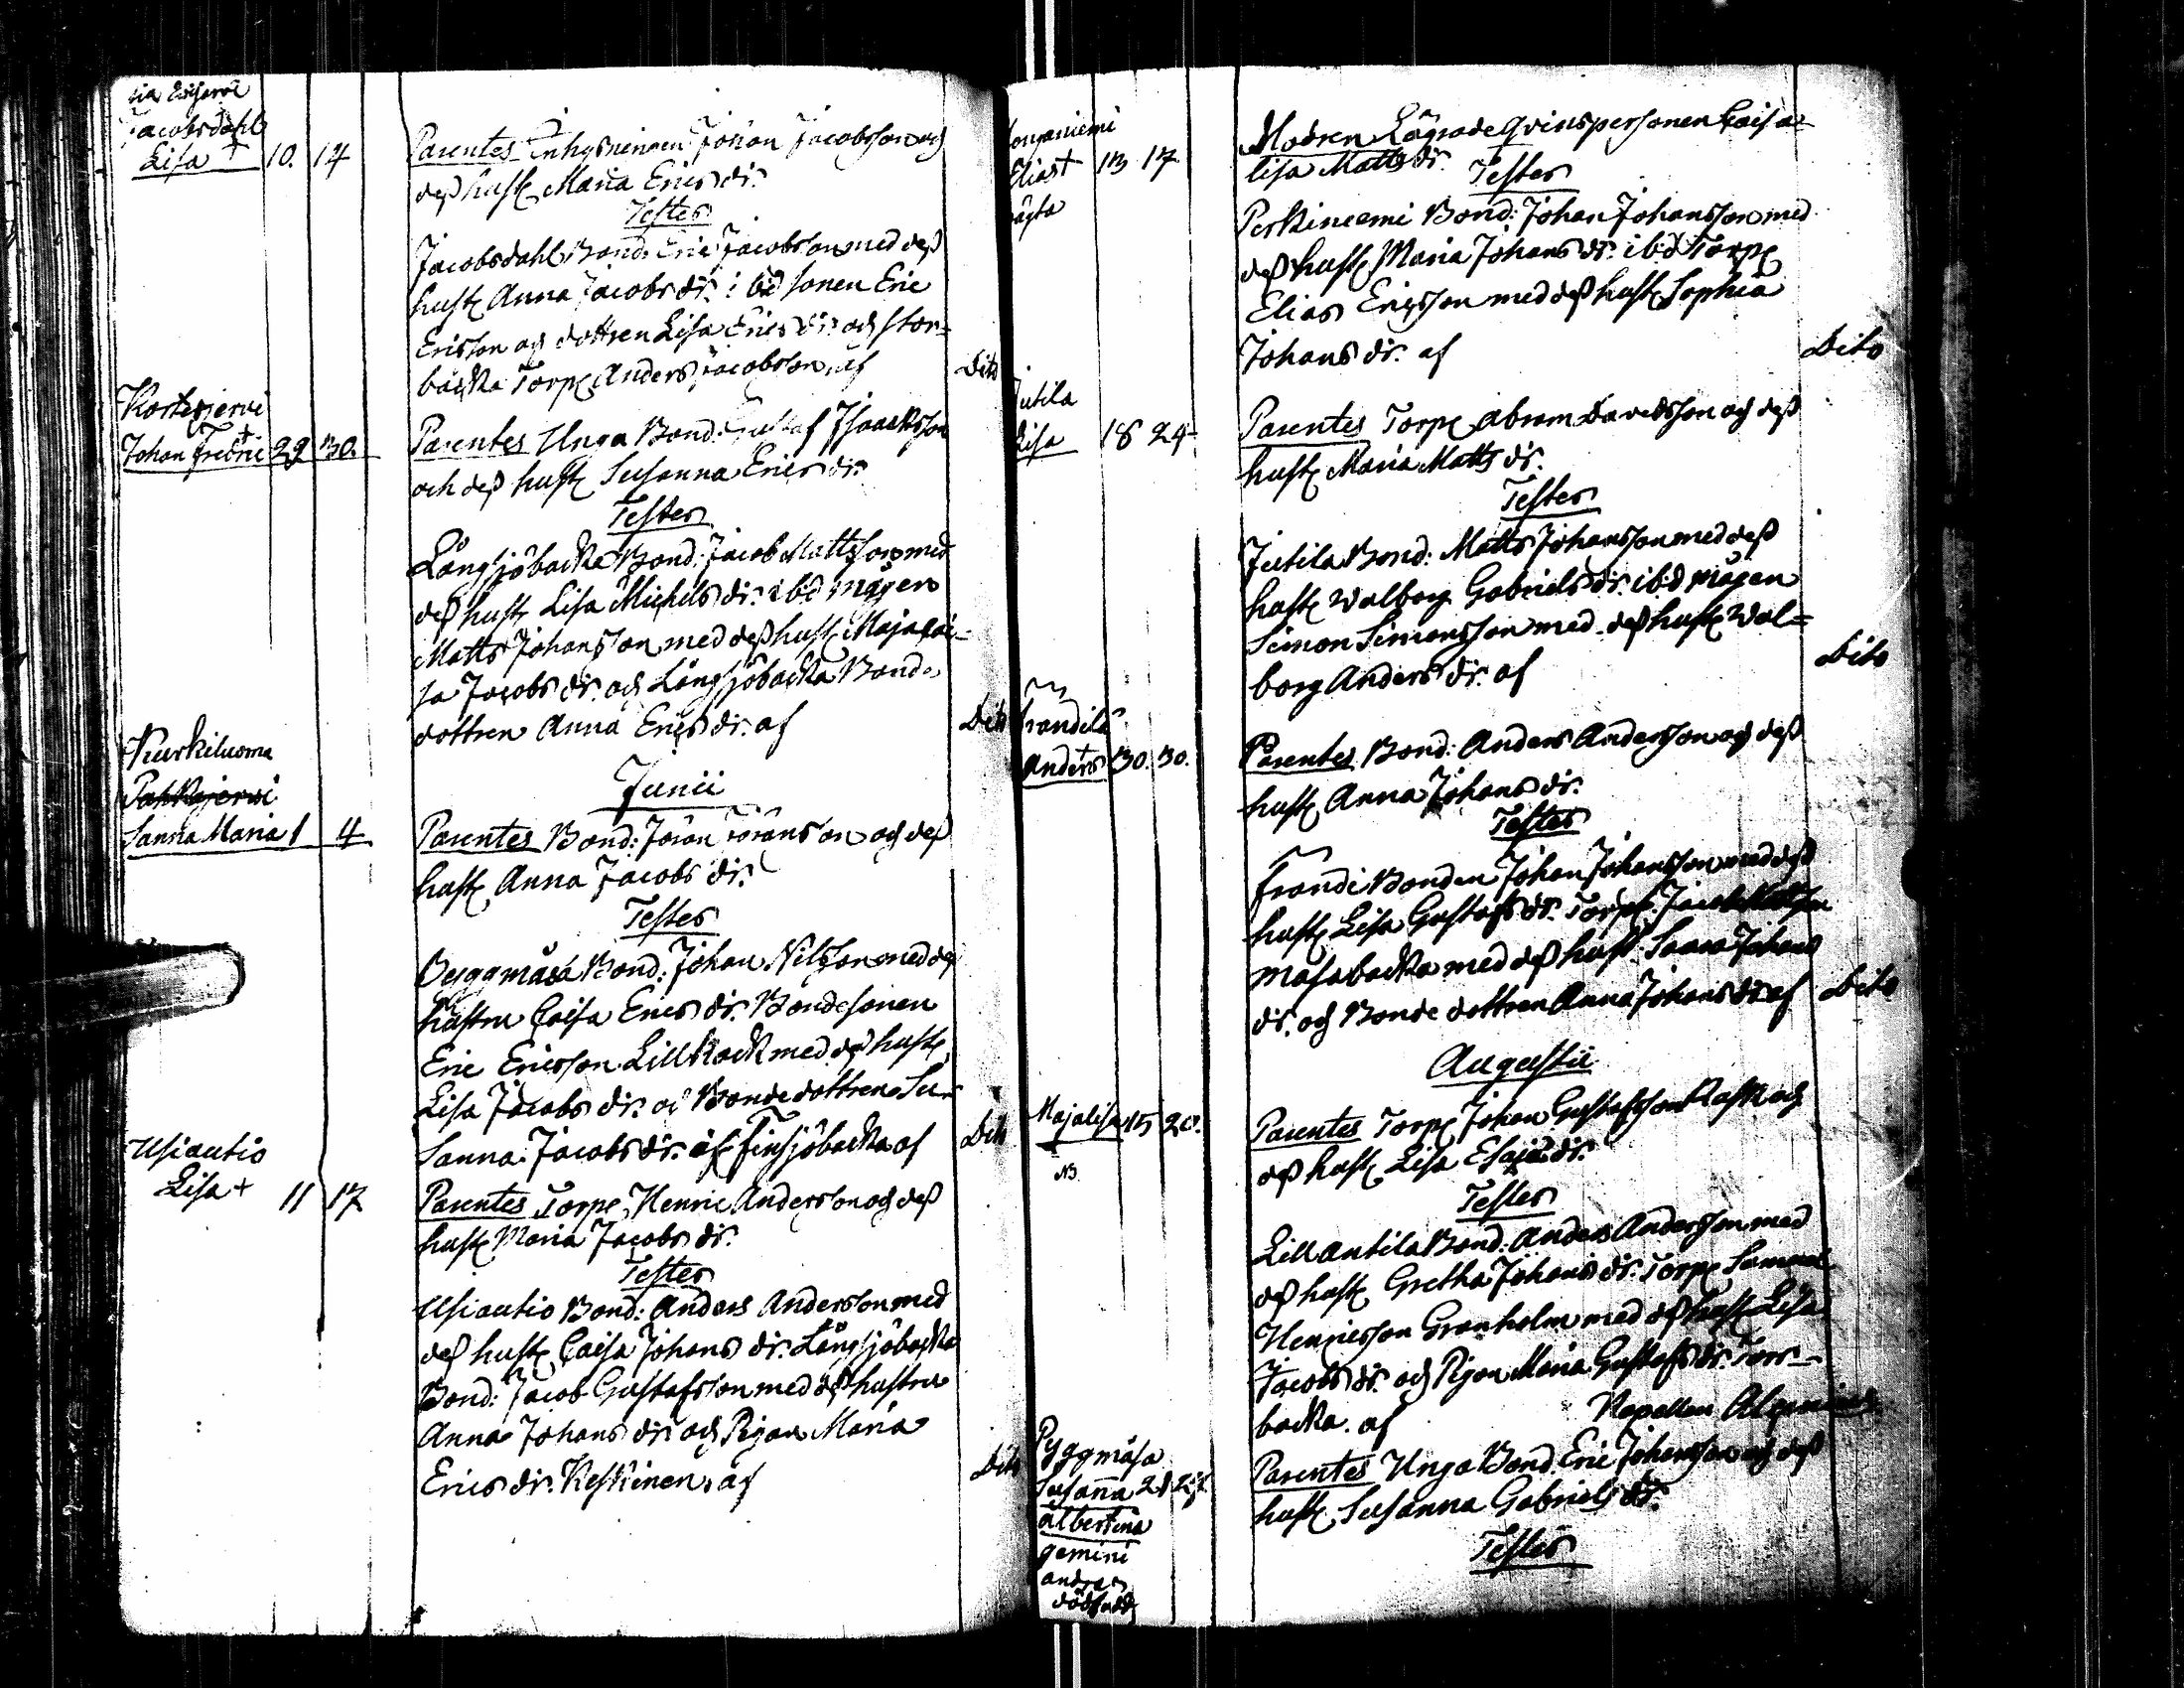 Jacobsdahl
Lisa + 10. 14
Parentes Inhysningen Johan Jacobsson och
dess hust. Maria Erics dr.
Testes
Jacobsdahl Bond: Eric Jacobsson med dess
hust. Anna Jacobs dr. ibd sonen Eric
Ericsson och dottren Lisa Erics dr. och Stor=
backa Torp. Anders Jacobsson af Dito
Kortesjervi
Johan Fredric + 29 30.
Parentes Unga Bond: Gustaf Isaacksson
och dess hust. Susanna Erics dr.
Testes
Långsjöbacka Bond: Jacob Mattsson med
dess hust. Lisa Michels dr. ibd mågen
Matts Johansson med dess hust. Maja Cai=
sa Jacobs dr. och Långsjöbacka Bonde
dottren Anna Erics dr. af Dito
Junii
Kurkiluoma
Pahkajervi
Sanna Maria 1 4
Parentes Bond: Johan Johansson och dess
hust. Anna Jacobs dr.
Testes
Byggmäsa Bond: Johan Nilsson med dess
hustru Caisa Erics dr. Bondesonen
Eric Ericsson Lillkack med dess hust.
Lisa Jacobs dr. och Bondedottren Su=
sanna Jacobs dr. af Finsjöbacka af Dito
Usiautio
Lisa + 11 17
Parentes Torp. Henric Andersson och dess
hust. Maria Jacobs dr.
Testes
Usiautio Bond: Anders Andersson med
dess hust. Caisa Johans dr. Långsjöbacka
Bond: Jacob Gustafsson med dess hustru
Anna Johans dr. och Pigan Maria
Erics dr. Keskinen af Dito
Elias + 13 17
Modren Lägrade Qvinspersonen Caisa
lisa Matts dr.
Testes
Perkineemi Bond: Johan Johansson med
dess hust. Maria Johans dr. ibd Torp.
Elias Ericsson med dess hust. Sophia
Johans dr. af Dito
Jutila
Lisa 18 24
Parentes Torp. Abram Davidsson och dess
hust. Maria Matts dr.
Testes
Jutila Bond: Matts Johansson med dess
hust. Walborg Gabriels dr. ibd mågen
Simon Simonsson med dess hust. Wal=
borg Anders dr. af Dito
Frandila
Anders + 30. 30.
Parentes Bond: Anders Andersson och dess
hust. Anna Johans dr.
Testes
Frandi Bonden Johan Johansson med dess
hust. Lisa Gustafs dr. Torp. Jacob Mattsson
Mäsabacka med dess hust. Saara Johans
dr. och Bonde dottren Anna Johans dr. af Dito
Augustii
Majalisa 15 20.
NB.
Parentes Torp. Johan Gustafsson Kask och
dess hust. Lisa Esaiæ dr.
Testes
Lill Antila Bond: Anders Andersson med
dess hust. Gretha Johans dr. Torp. Samuel
Henricsson Granholm med dess hust. Lisa
Jacobs dr. och Pigan Maria Gustafs dr. Torr=
backa. af Kapellan
Pyggmäsa
Susanna 21
albertina
gemini
andra
dödfödd
Parentes Unga Bond. Eric Johansson och dess
hust. Susanna Gabriels dr.
Testes